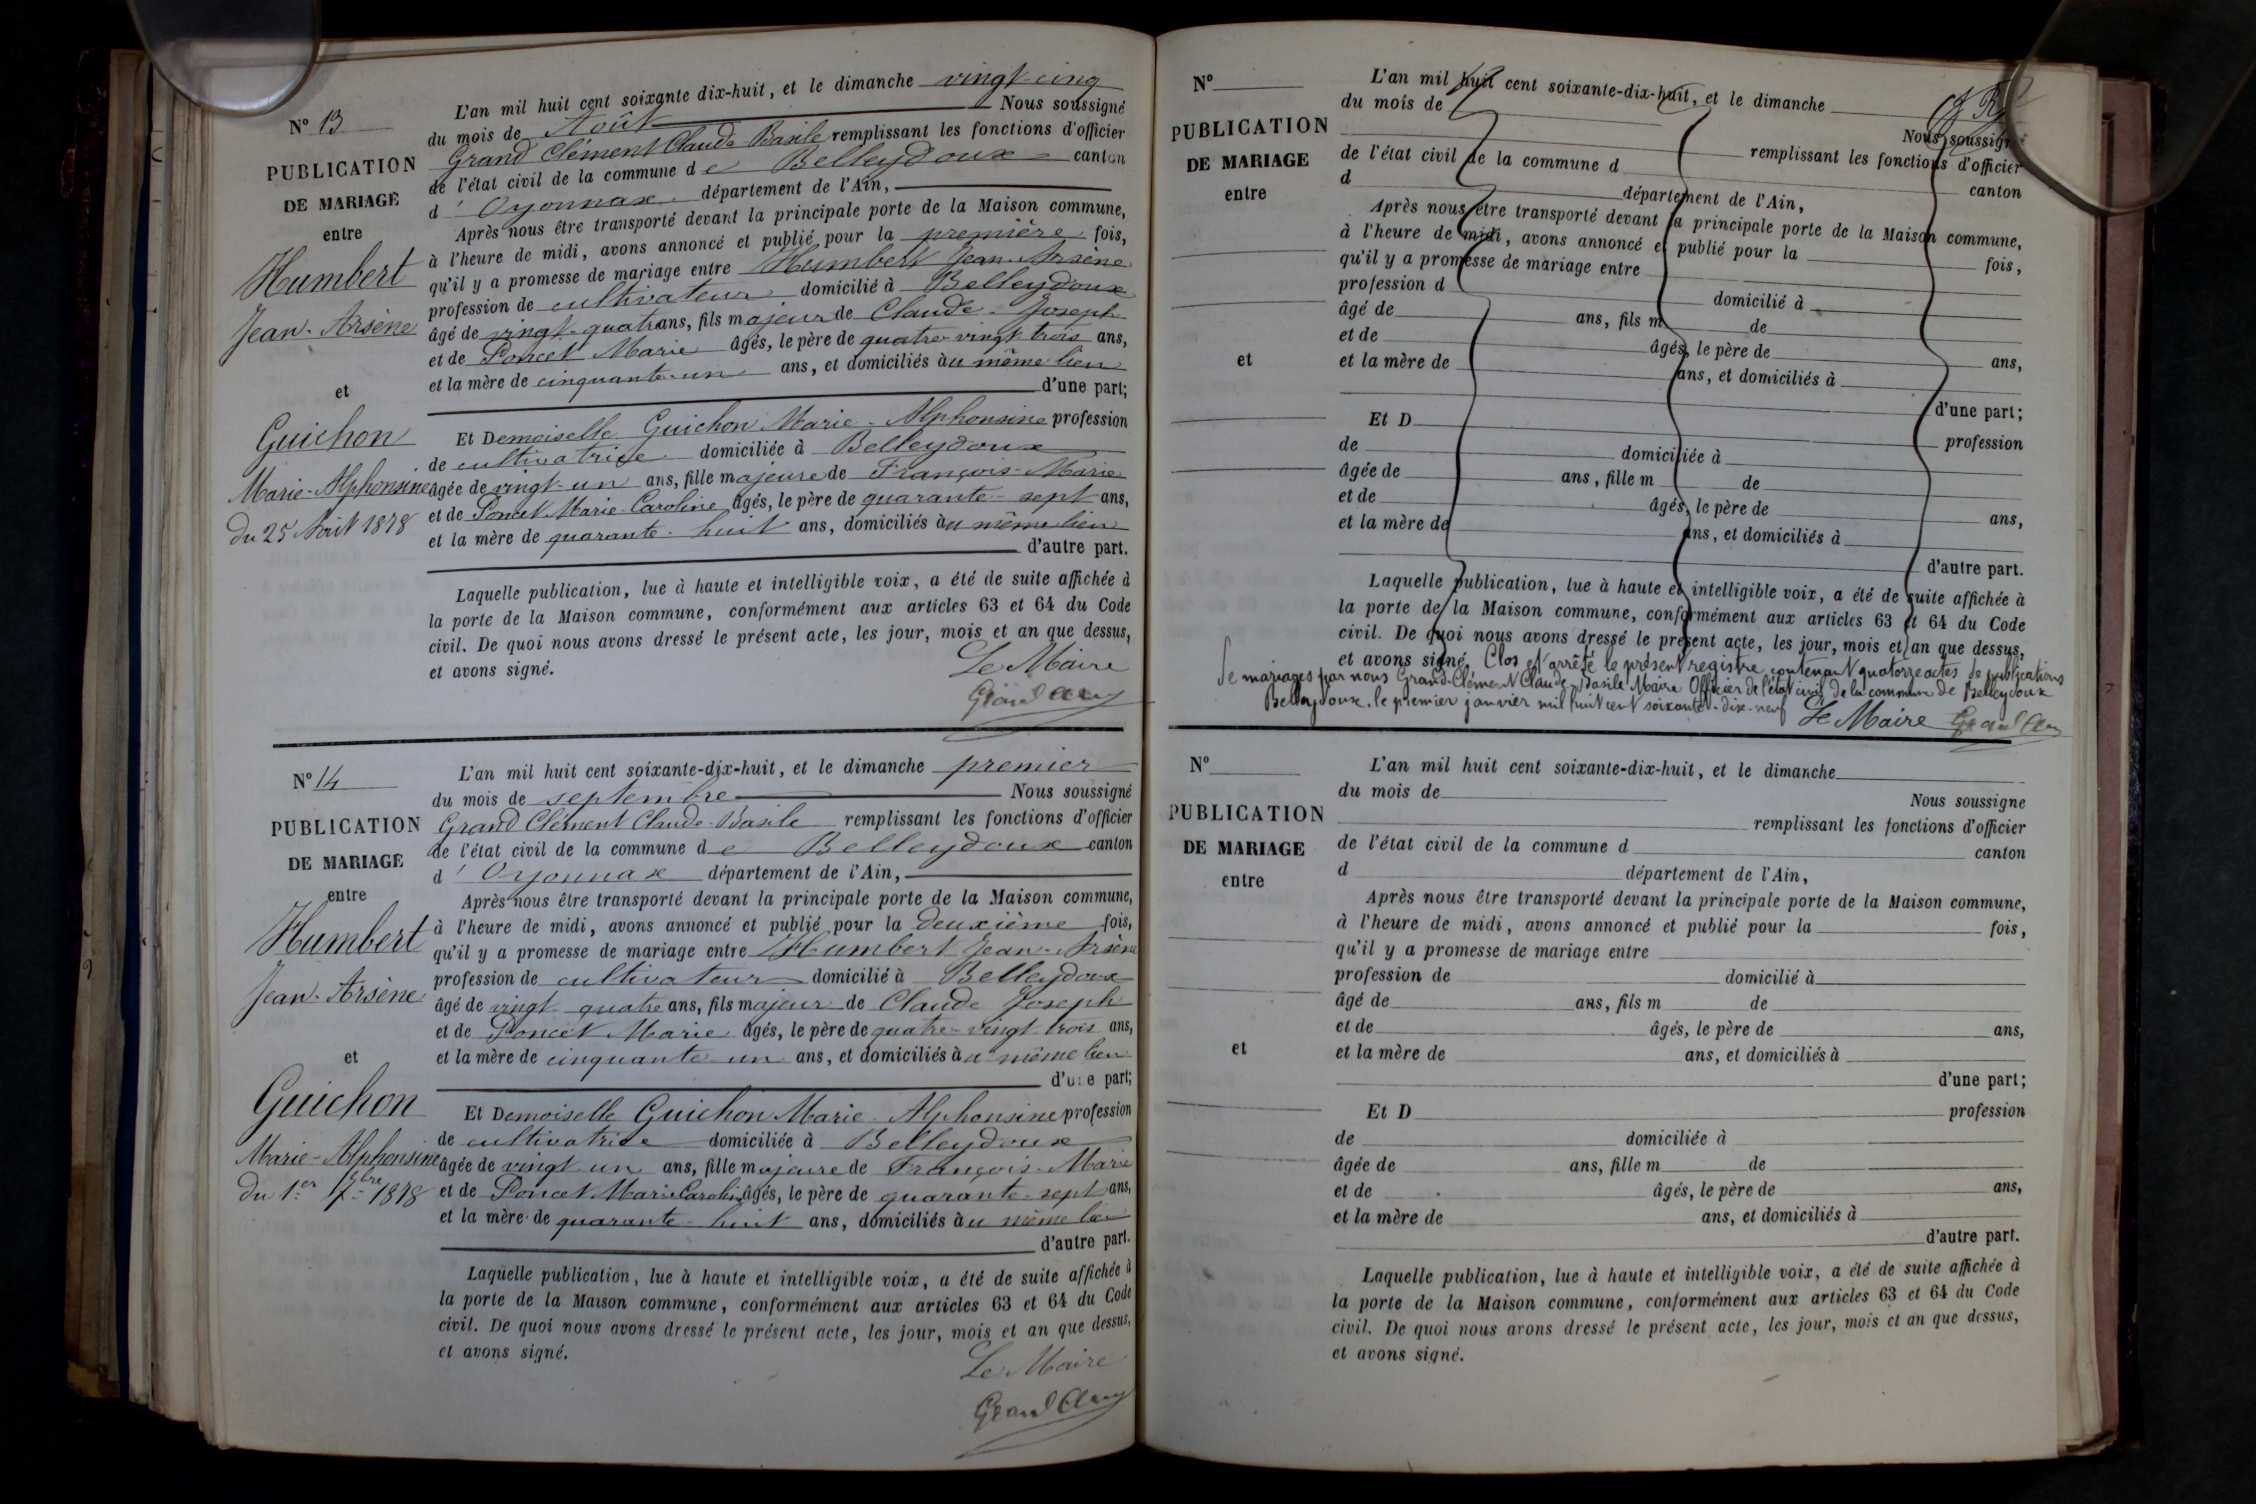 N° 13
PUBLICATION
DE MARIAGE
entre
Humbert
Jean-Arsène
et
Guichon
Marie-Alphonsine
Du 25 Août 1878
L'an mil huit cent soixante dix-huit, et le dimanche vingt-cinq
du mois de Août Nous soussigné
Grand Clément Claude-Basile remplissant les fonctions d'officier
de l'état civil de la commune de Belleydoux canton
d'Oyonnax département de l'Ain,
Après nous être transporté devant la principale porte de la Maison commune,
à l'heure de midi, avons annoncé et publié pour la première fois,
qu'il y a promesse de mariage entre Humbert Jean-Arsène
profession de cultivateur domicilié à Belleydoux
âgé de vingt-quatre ans, fils majeur de Claude-Joseph
et de Poncet Marie âgés, le père de quatre-vingt-trois ans,
et la mère de cinquante-un ans, et domiciliés au même lieu
d'une part;
Et Demoiselle Guichon Marie-Alphonsine profession
de cultivatrice domiciliée à Belleydoux
âgée de vingt-un ans, fille majeure de François-Marie
et de Poncet Marie-Caroline âgés, le père de quarante-sept ans,
et la mère de quarante-huit ans, domiciliés au même lieu
d'autre part.
Laquelle publication, lue à haute et intelligible voix, a été de suite affichée à
la porte de la Maison commune, conformément aux articles 63 et 64 du Code
civil. De quoi nous avons dressé le présent acte, les jour, mois et an que dessus,
et avons signé.
Le Maire
Grand Clem
N° 14
PUBLICATION
DE MARIAGE
entre
Humbert
Jean-Arsène
et
Guichon
Marie-Alphonsine
du 1er 7bre 1878
L'an mil huit cent soixante-dix-huit, et le dimanche premier
du mois de septembre Nous soussigné
Grand Clément Claude-Basile remplissant les fonctions d'officier
de l'état civil de la commune de Belleydoux canton
d'Oyonnax département de l'Ain,
Après nous être transporté devant la principale porte de la Maison commune,
à l'heure de midi, avons annoncé et publié pour la deuxième fois,
qu'il y a promesse de mariage entre Humbert Jean-Arsène
profession de cultivateur domicilié à Belleydoux
âgé de vingt-quatre ans, fils majeur de Claude Joseph
et de Poncet Marie âgés, le père de quatre-vingt trois ans,
et la mère de cinquante-un ans, et domiciliés au même lieu
d'une part;
Et Demoiselle Guichon Marie-Alphonsine profession
de cultivatrice domiciliée à Belleydoux
âgée de vingt-un ans, fille majeure de François-Marie
et de Poncet Marie Caroline âgés, le père de quarante-sept ans,
et la mère de quarante-huit ans, domiciliés au même lieu
d'autre part.
Laquelle publication, lue à haute et intelligible voix, a été de suite affichée à
la porte de la Maison commune, conformément aux articles 63 et 64 du Code
civil. De quoi nous avons dressé le présent acte, les jour, mois et an que dessus,
et avons signé.
Le Maire
Grand Clem
N°
PUBLICATION
DE MARIAGE
entre
et
L'an mil huit cent soixante-dix-huit, et le dimanche
du mois de
Nous soussigné
remplissant les fonctions d'officier
de l'état civil de la commune d canton
d département de l'Ain,
Après nous être transporté devant la principale porte de la Maison commune,
à l'heure de midi, avons annoncé et publié pour la fois,
qu'il y a promesse de mariage entre
profession d domicilié à
âgé de ans, fils m de
et de âgés, le père de ans,
et la mère de ans, et domiciliés à
d'une part;
Et D profession
de domiciliée à
âgée de ans, fille m de
et de âgés, le père de ans,
et la mère de ans, et domiciliés à
d'autre part.
Laquelle publication, lue à haute et intelligible voix, a été de suite affichée à
la porte de la Maison commune, conformément aux articles 63 et 64 du Code
civil. De quoi nous avons dressé le présent acte, les jour, mois et an que dessus,
et avons signé. Clos et arrêté le présent registre contenant quatorze actes de publications
de mariages par nous Grand-Clément Claude-Basile Maire Officier de l'état civil de la commune de Belleydoux
Belleydoux, le premier janvier mil huit cent soixante-dix-neuf Le Maire Grand Clem
N°
PUBLICATION
DE MARIAGE
entre
et
L'an mil huit cent soixante-dix-huit, et le dimanche
du mois de
Nous soussigne
remplissant les fonctions d'officier
de l'état civil de la commune d canton
d département de l'Ain,
Après nous être transporté devant la principale porte de la Maison commune,
à l'heure de midi, avons annoncé et publié pour la fois,
qu'il y a promesse de mariage entre
profession de domicilié à
âgé de ans, fils m de
et de âgés, le père de ans,
et la mère de ans, et domiciliés à
d'une part;
Et D profession
de domiciliée à
âgée de ans, fille m de
et de âgés, le père de ans,
et la mère de ans, et domiciliés à
d'autre part.
Laquelle publication, lue à haute et intelligible voix, a été de suite affichée à
la porte de la Maison commune, conformément aux articles 63 et 64 du Code
civil. De quoi nous avons dressé le présent acte, les jour, mois et an que dessus,
et avons signé.